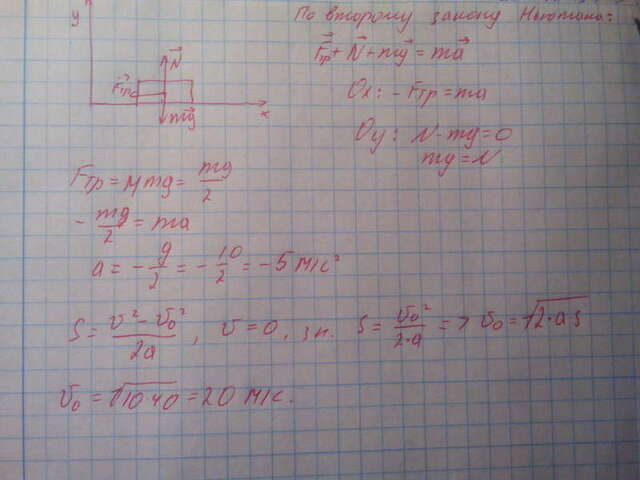 По второму закону Ньютона:
F⃗тр + N⃗ + mg⃗ = ma⃗
Ox: - Fтр = ma
Oy: N - mg = 0
mg = N
y
N⃗
F⃗тр
mg⃗
x
Fтр = μmg = mg/2
- mg/2 = ma
a = - g/2 = - 10/2 = -5 м/с²
S = (v² - v₀²)/2a, v = 0, зн. S = v₀²/2·a => v₀ = √2·as
v₀ = √10·40 = 20 м/с.